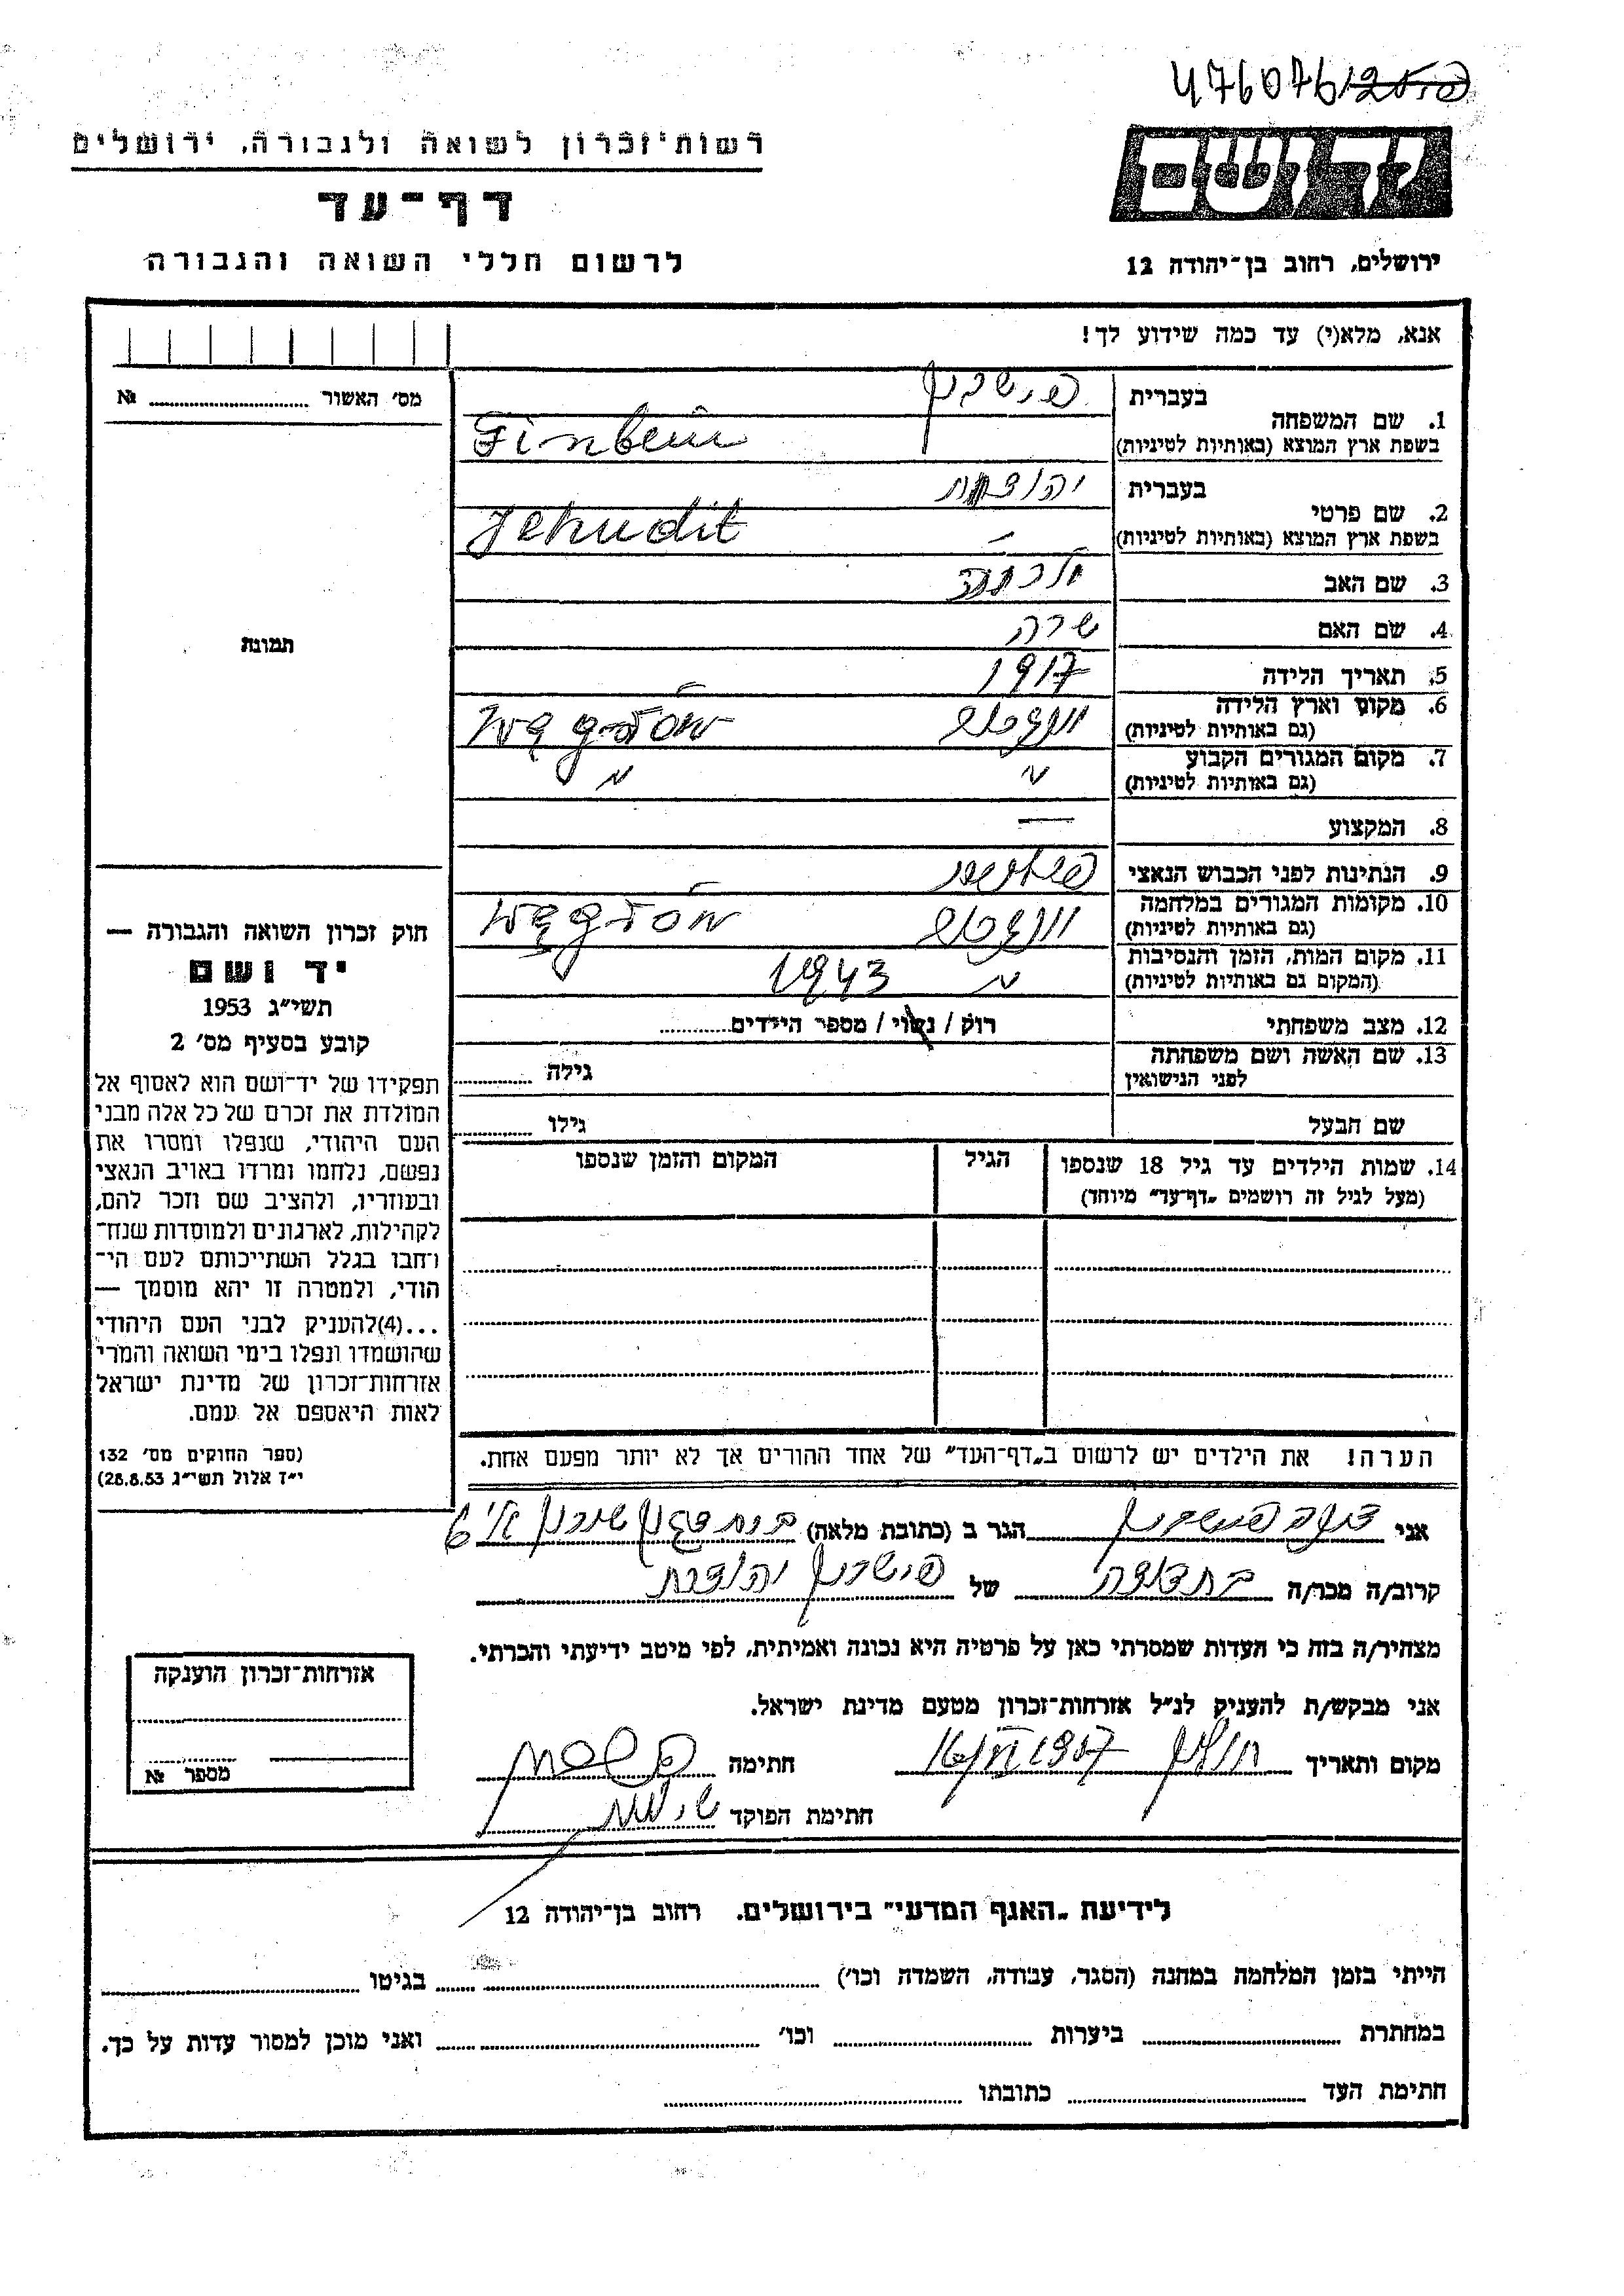 476076/250
רשות־זכרון לשואה ולגבורה, ירושלים
דף־עד
לרשום חללי השואה והגבורה
יד ושם
ירושלים, רחוב בן־יהודה 12
אנא, מלא(י) עד כמה שידוע לך!
מס' האשור № 
תמונה
1. שם המשפחה
בעברית פישביין
בשפת ארץ המוצא (באותיות לטיניות) Finbein
2. שם פרטי
בעברית יהודית
בשפת ארץ המוצא (באותיות לטיניות) Jehudit
3. שם האב
4. שם האם שרה
5. תאריך הלידה 1917
6. מקום וארץ הלידה
(גם באותיות לטיניות) Węgrów
7. מקום המגורים הקבוע
(גם באותיות לטיניות) " "
8. המקצוע —
9. הנתינות לפני הכבוש הנאצי
10. מקומות המגורים במלחמה
(גם באותיות לטיניות) Węgrów
11. מקום המות, הזמן והנסיבות
(המקום גם באותיות לטיניות) " 1943
12. מצב משפחתי רוק / נשוי / מספר הילדים
13. שם האשה ושם משפחתה
לפני הנישואין גילה
שם הבעל גילו
14. שמות הילדים עד גיל 18 שנספו הגיל המקום והזמן שנספו
(מעל לגיל זה רושמים „דף־עד" מיוחד)
הערה! את הילדים יש לרשום ב„דף־העד" של אחד ההורים אך לא יותר מפעם אחת.
חוק זכרון השואה והגבורה —
יד ושם
תשי״ג 1953
קובע בסעיף מס' 2
תפקידו של יד־ושם הוא לאסוף אל
המולדת את זכרם של כל אלה מבני
העם היהודי, שנפלו ומסרו את
נפשם, נלחמו ומרדו באויב הנאצי
ובעוזריו, ולהציב שם וזכר להם,
לקהילות, לארגונים ולמוסדות שנח־
רחבו בגלל השתייכותם לעם הי־
הודי, ולמטרה זו יהא מוסמך —
...(4)להעניק לבני העם היהודי
שהושמדו ונפלו בימי השואה והמרי
אזרחות־זכרון של מדינת ישראל
לאות היאספם אל עמם.
(ספר החוקים מס' 132
י״ז אלול תשי״ג 28.8.53)
אני פישביין הגר ב (כתובת מלאה)
קרוב/ה מכר/ה בת דודה של פישביין יהודית
מצהיר/ה בזה כי העדות שמסרתי כאן על פרטיה היא נכונה ואמיתית, לפי מיטב ידיעתי והכרתי.
אני מבקש/ת להעניק לנ״ל אזרחות־זכרון מטעם מדינת ישראל.
מקום ותאריך חולון חתימה
חתימת הפוקד
אזרחות־זכרון הוענקה
מספר №
לידיעת „האגף המדעי" בירושלים. רחוב בן־יהודה 12
הייתי בזמן המלחמה במחנה (הסגר, עבודה, השמדה וכו') בגיטו
במחתרת ביערות וכו' ואני מוכן למסור עדות על כך.
חתימת העד כתובתו